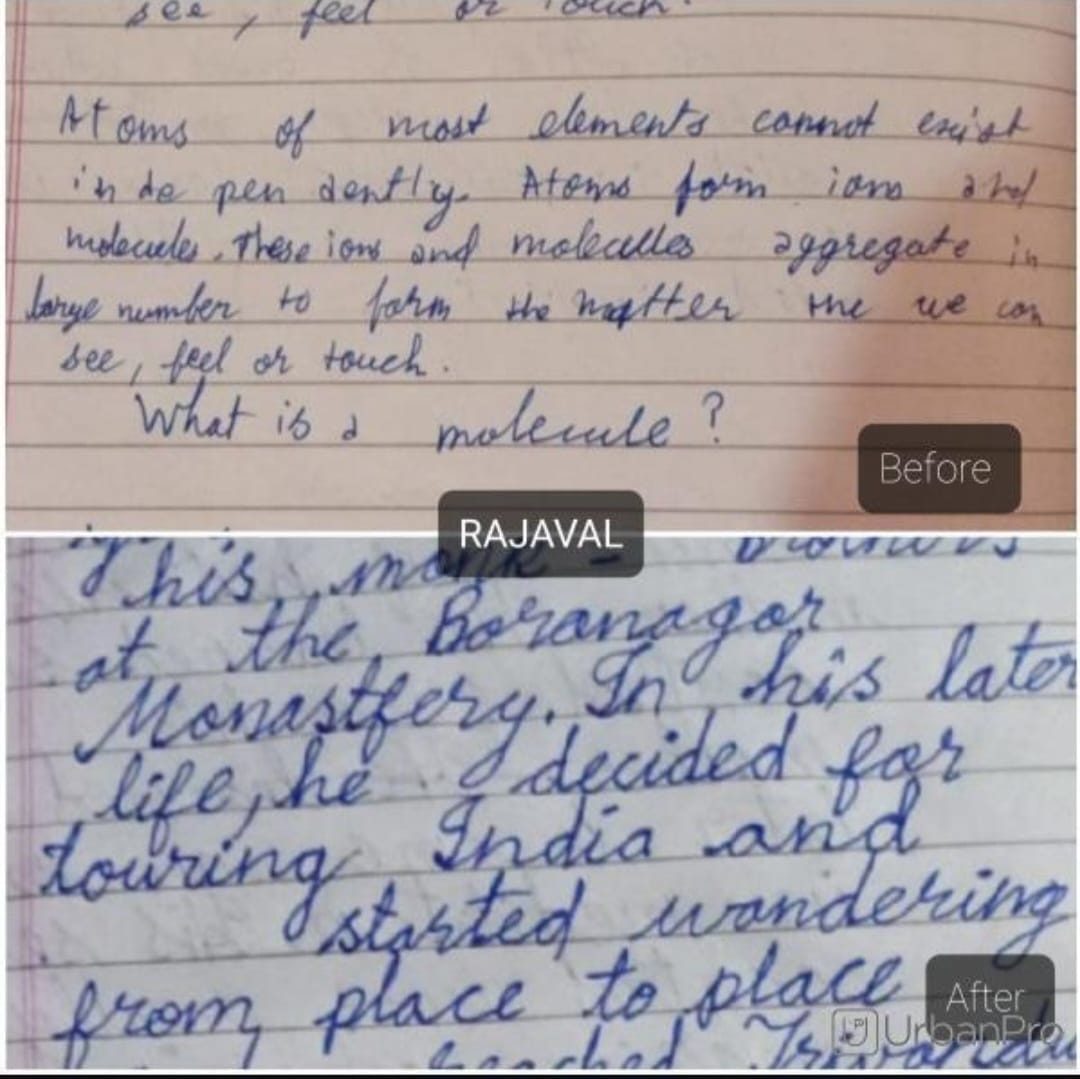 see, feel or touch.
Atoms of most elements cannot exist
in de pen dently. Atoms form ions and
molecules. These ions and molecules aggregate in
large number to form the matter the we can
see, feel or touch.
What is a molecule?
Before
RAJAVAL
his monk - brothers
at the Boranagar
Monastfery. In his later
life, he decided for
touring India and
started wandering
from place to place
After
UrbanPro
reached